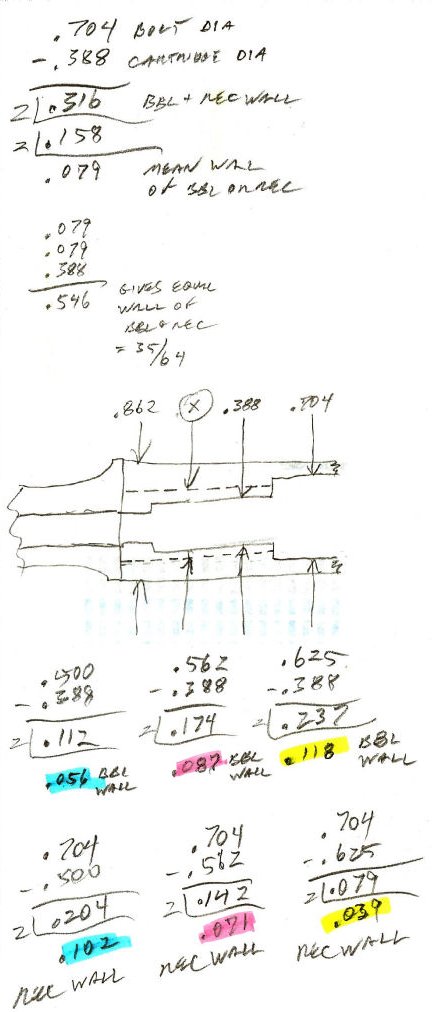 .704 BOLT DIA
-.388 CARTRIDGE DIA
2 .316 BBL + REC WALL
2 .158
.079 MEAN WALL
OF BBL OR REC
.079
.079
.388
.546 GIVES EQUAL
WALL OF
BBL & REC
= 35/64
.862 X .388 .704
.500 .562 .625
-.388 -.388 -.388
2 .112 2 .174 2 .237
.056 BBL WALL .087 BBL WALL .118 BBL WALL
.704 .704 .704
-.500 -.562 -.625
2 .204 2 .142 2 .079
.102 .071 .039
REC WALL REC WALL REC WALL